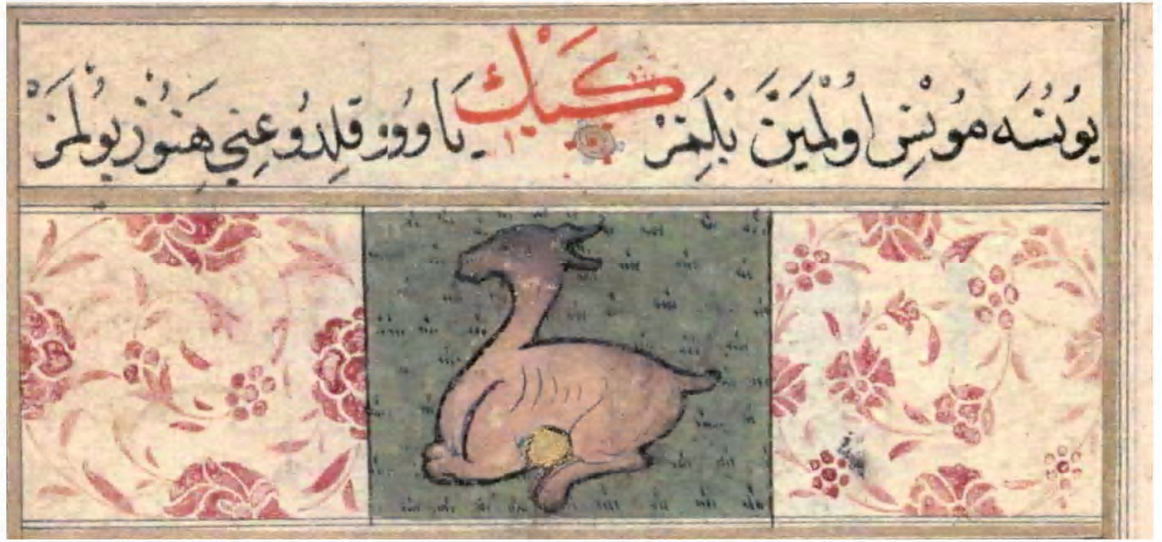 يُونُسَه مُونِسْ اوُلْمَيَنْ بُلَمَزْ كَيِكْ يَاووُ قِلدُوغِنِي هَنُوزْ بُولَمَزْ